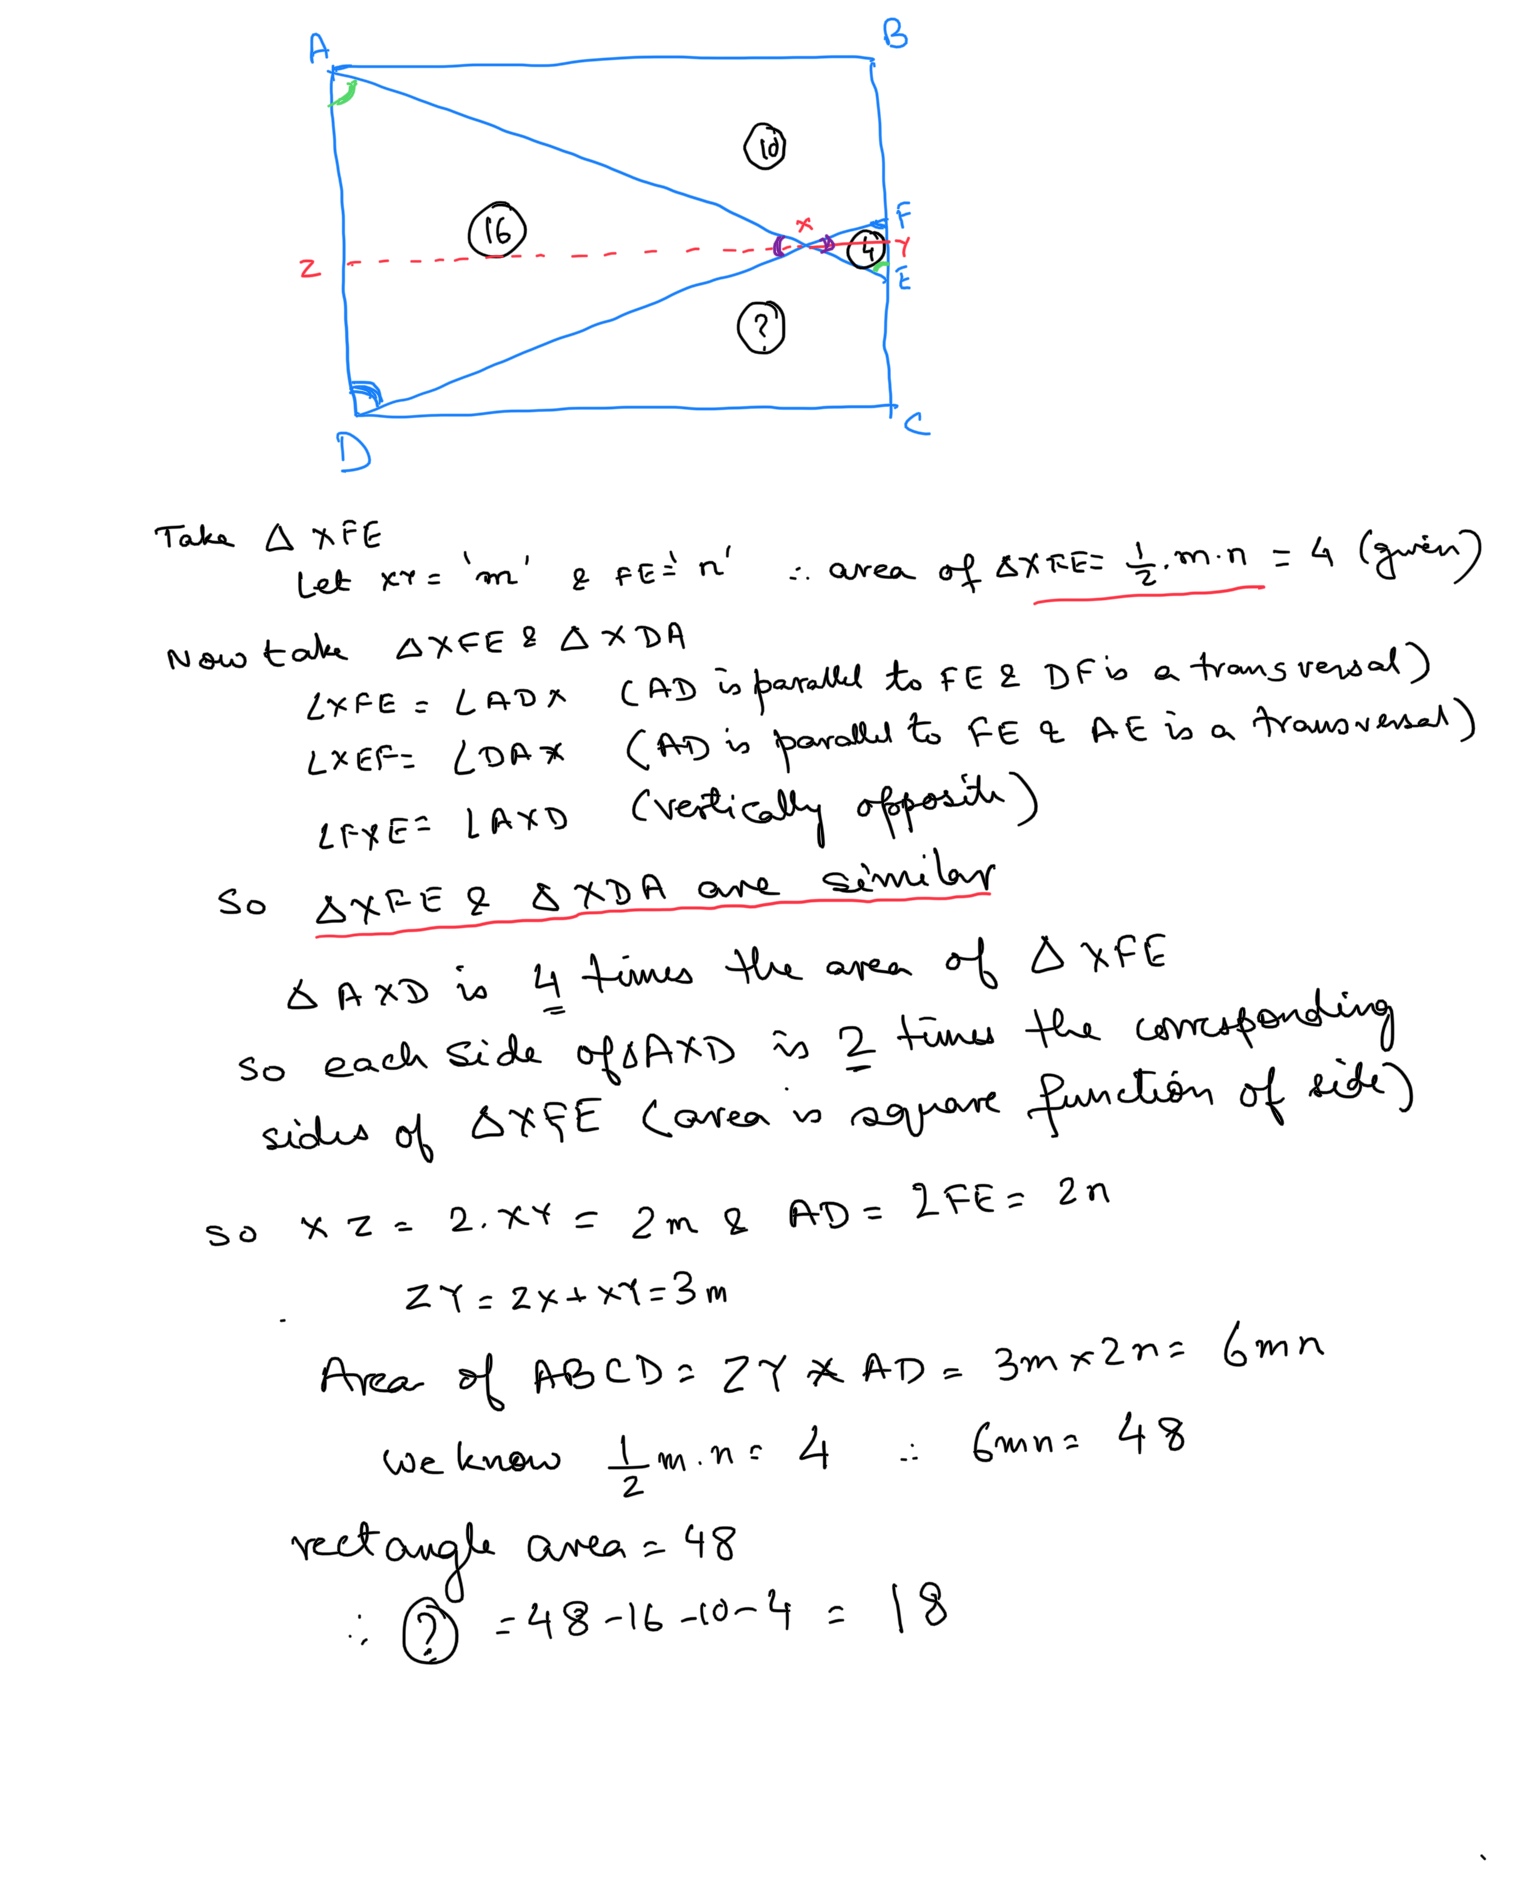 A
B
10
16
X
F
4
Y
Z
E
?
D
C
Take Δ XFE
Let XY = 'm' & FE = 'n' ∴ area of ΔXFE = 1/2 . m.n = 4 (given)
Now take ΔXFE & Δ XDA
∠XFE = ∠ADX (AD is parallel to FE & DF is a transversal)
∠XEF = ∠DAX (AD is parallel to FE & AE is a transversal)
∠FXE = ∠AXD (vertically opposite)
So ΔXFE & ΔXDA are similar
Δ AXD is 4 times the area of Δ XFE
so each side of ΔAXD is 2 times the corresponding
sides of ΔXFE (area is square function of side)
so XZ = 2.XY = 2m & AD = 2FE = 2n
ZY = ZX + XY = 3m
Area of ABCD = ZY * AD = 3m x 2n = 6mn
we know 1/2 m.n = 4 ∴ 6mn = 48
rectangle area = 48
∴ ? = 48 - 16 - 10 - 4 = 18